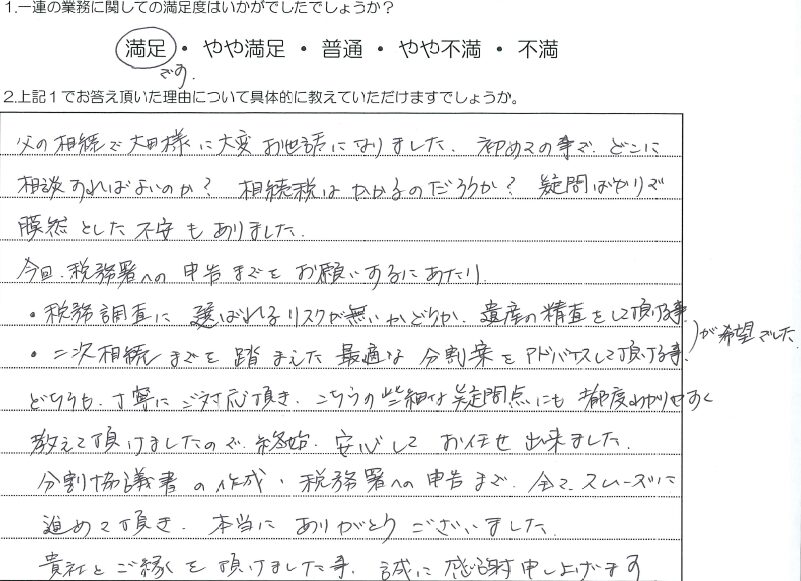 1.一連の業務に関しての満足度はいかがでしたでしょうか？
満足 ・ やや満足 ・ 普通 ・ やや不満 ・ 不満
です.
2.上記１でお答え頂いた理由について具体的に教えていただけますでしょうか。
父の相続で太田様に大変お世話になりました. 初めての事で. どこに
相談すればよいのか？ 相続税はかかるのだろうか？ 疑問ばかりで
漠然とした不安もありました.
今回. 税務署への申告までをお願いするにあたり.
・税務調査に選ばれるリスクが無いかどうか. 遺産の精査をして頂ける事.
・二次相続までを踏まえた最適な分割案をアドバイスして頂ける事. )が希望でした
どちらも. 丁寧にご対応頂き. こちらの些細な疑問点にも都度わかりやすく
教えて頂けましたので. 終始. 安心してお任せ出来ました.
分割協議書の作成. 税務署への申告まで. 全てスムーズに
進めて頂き. 本当にありがとうございました.
貴社とご縁を頂けました事. 誠に感謝申し上げます